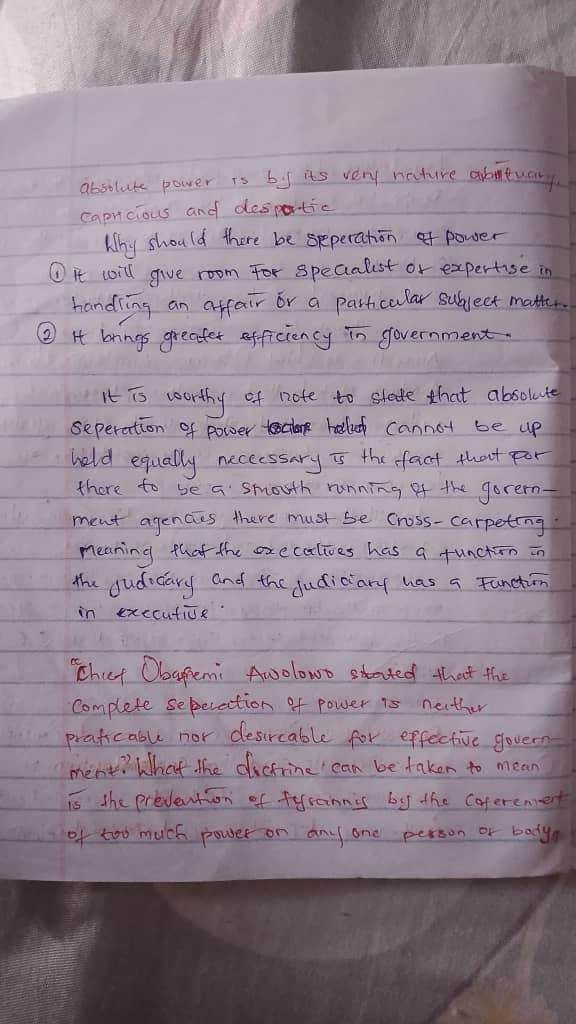 absolute power is by its very nature abituary,
capricious and despotic
Why should there be seperation of power
① It will give room for specialist or expertise in
handling an affair or a particular subject matter.
② It brings greater efficiency in government.
It is worthy of note to state that absolute
seperation of power cannot be up
held equally neccessary is the fact that for
there to be a smooth running of the govern-
ment agencies there must be cross-carpeting.
meaning that the executives has a function in
the judicary and the judiciary has a function
in executive.
"Chief Obafemi Awolowo stated that the
complete seperation of power is neither
praticable nor desireable for effective govern-
ment" What the doctrine can be taken to mean
is the prevention of by the coferement
of too much power on any one person or body.